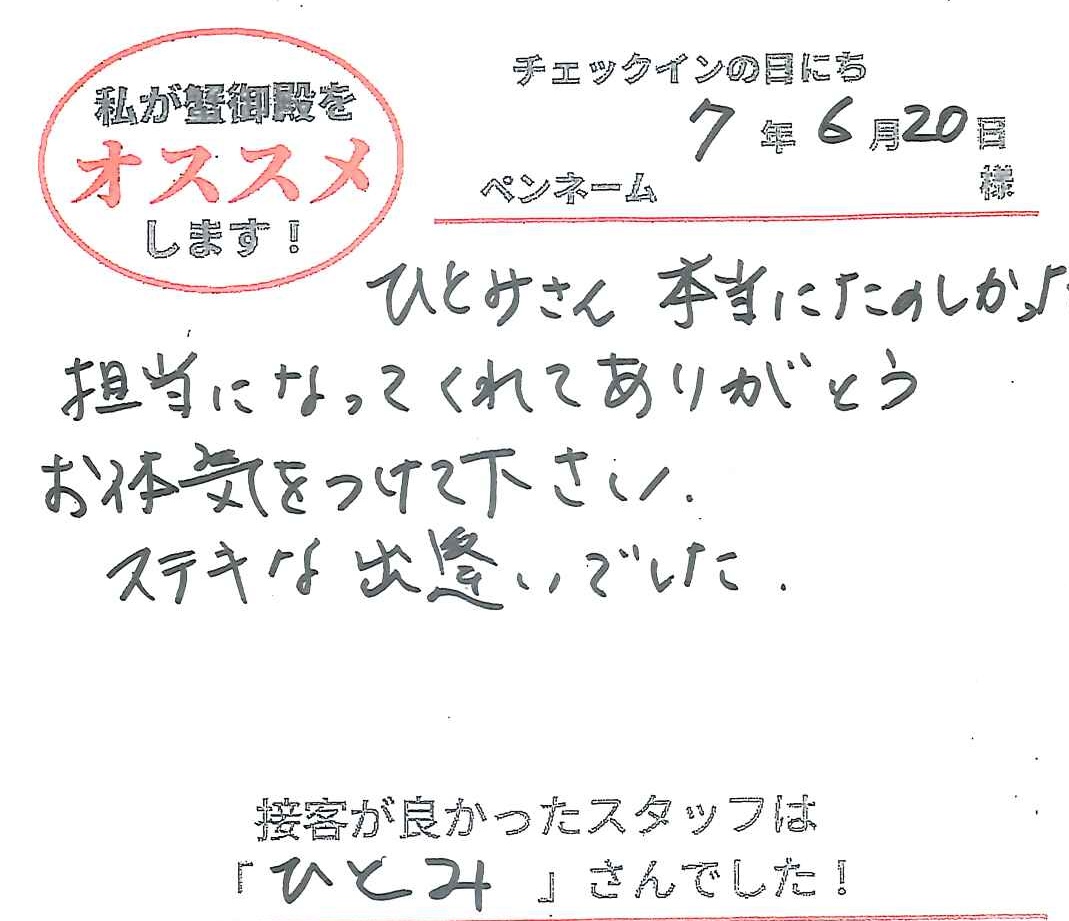 私が蟹御殿を
オススメ
します！
チェックインの日にち
7年6月20日
ペンネーム 様
ひとみさん 本当にたのしかった
担当になってくれてありがとう
お体気をつけて下さい.
ステキな出逢いでした.
接客が良かったスタッフは
「ひとみ」さんでした！